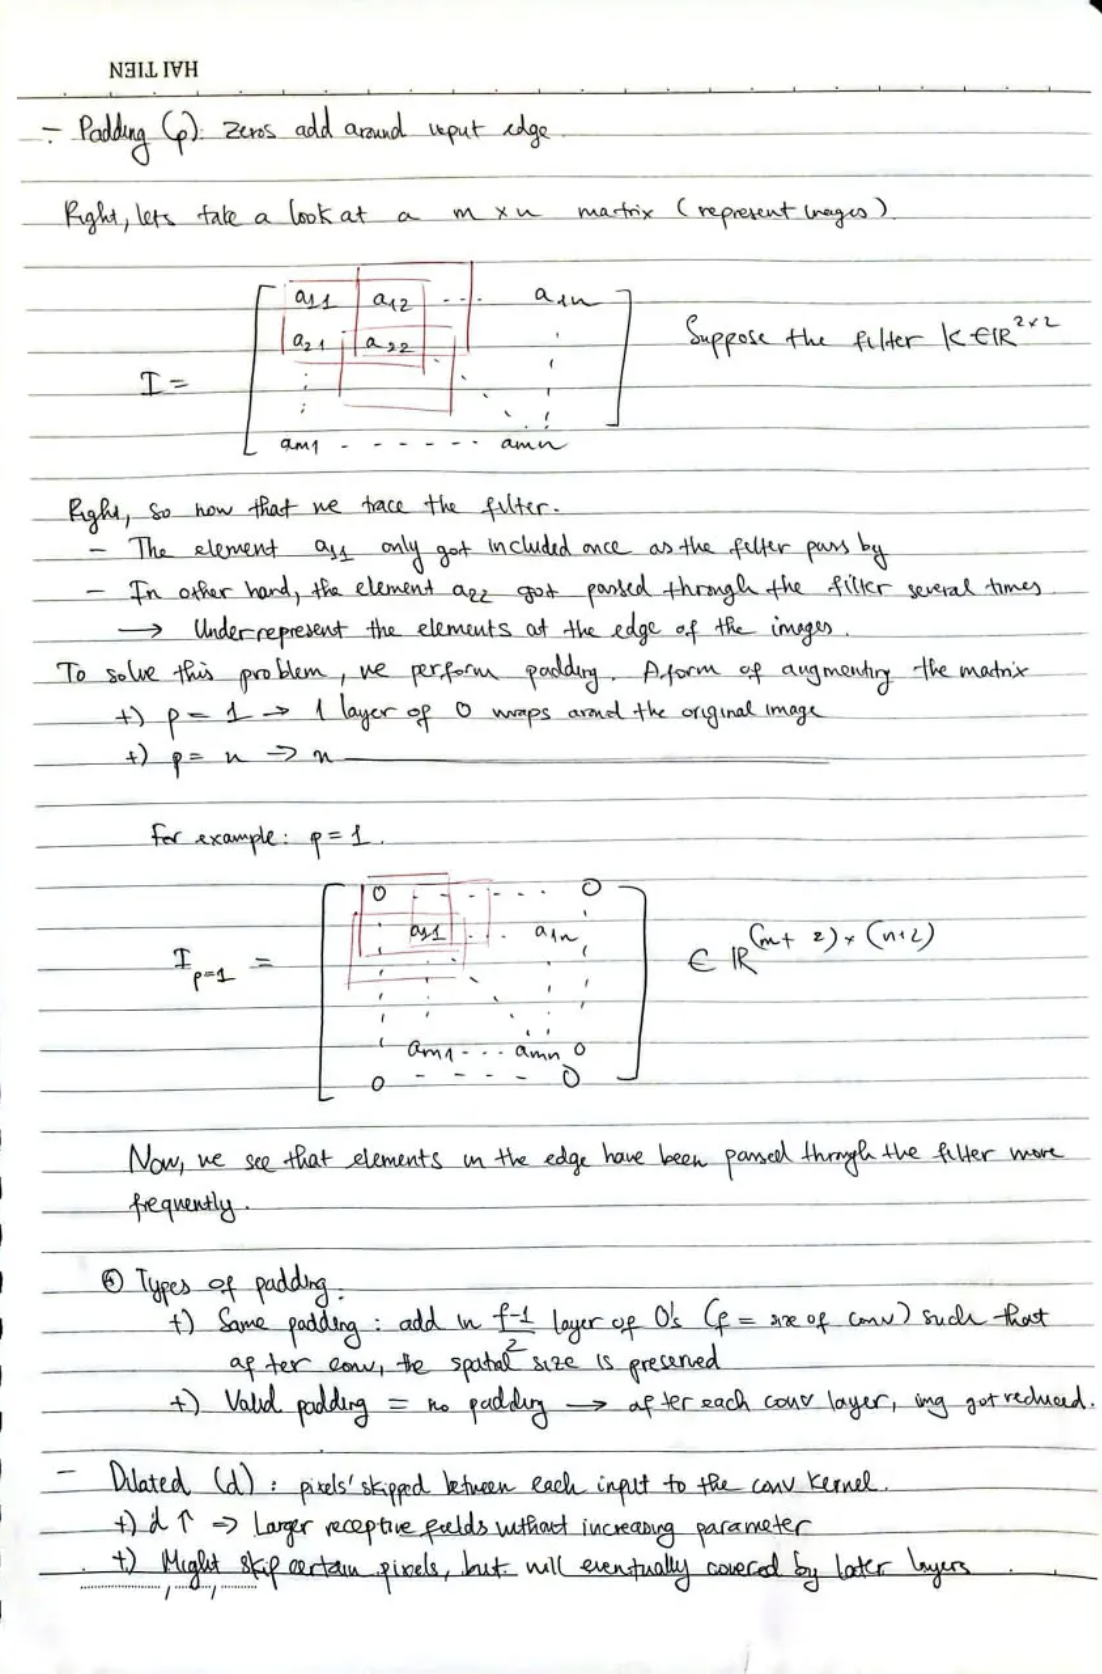 HAI TIEN
- Padding (p): zeros add around input edge.
Right, lets take a look at a m x n matrix (represent images).
a11 a12 - - - a1n
a21 a22
Suppose the filter K ∈ ℝ^{2×2}
I =
am1 - - - - - - amn
Right, so now that we trace the filter.
- The element a11 only got included once as the filter pass by
- In other hand, the element a22 got passed through the filter several times
→ Underrepresent the elements at the edge of the images.
To solve this problem, we perform padding. A form of augmenting the matrix
+) p = 1 → 1 layer of 0 wraps around the original image
+) p = n → n
For example: p = 1.
0 - - - - - 0
a11 . . . a1n
I_{p=1} = ∈ ℝ^{(m+2)×(n+2)}
am1 - - - amn 0
0 - - - - 0
Now, we see that elements in the edge have been passed through the filter more
frequently.
Types of padding:
+) Same padding: add in f-1/2 layer of 0's (f = size of conv) such that
after conv, the spatial size is preserved
+) Valid padding = no padding → after each conv layer, img got reduced.
- Dilated (d): pixels' skipped between each input to the conv kernel.
+) d ↑ ⇒ Larger receptive fields without increasing parameter
+) Might skip certain pixels, but will eventually covered by later layers